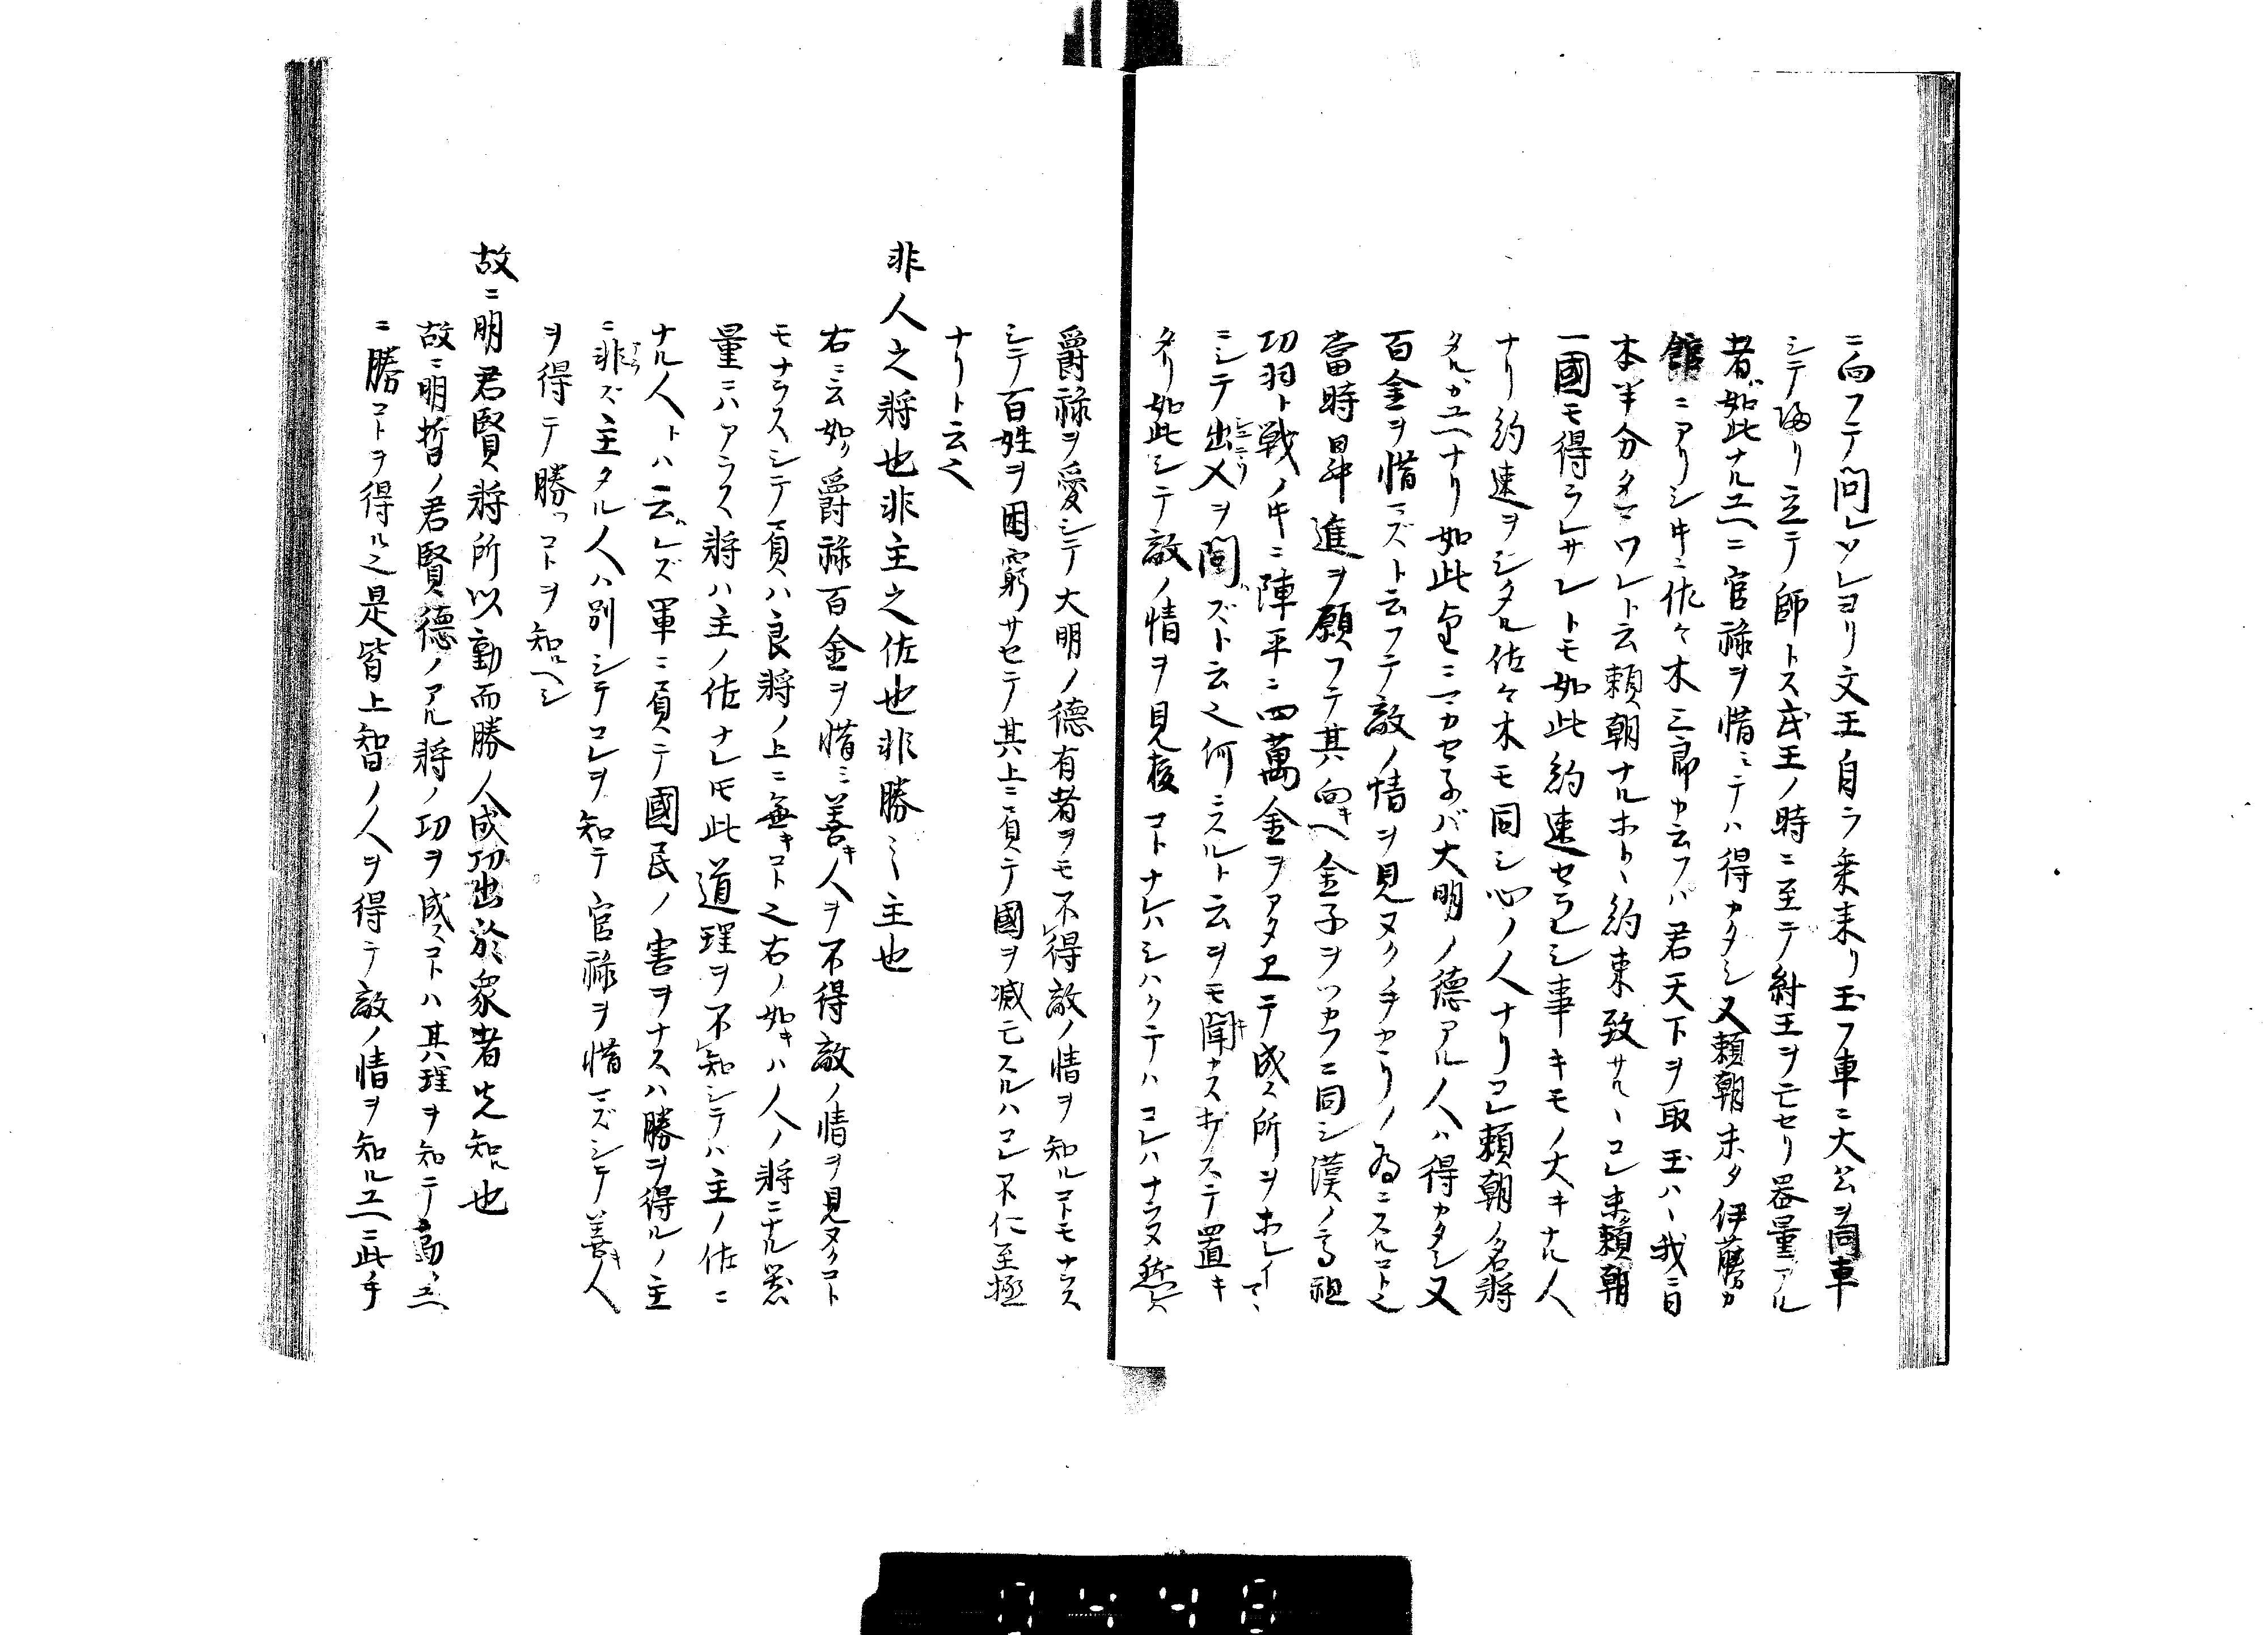 ニ向フテ問レソレヨリ文王自ラ乗来リ玉フ車ニ大公ヲ同車
シテ帰リ立テ師トス武王ノ時ニ至テ紂王ヲ亡セリ器量アル
者ハ如此ナルユヘニ官禄ヲ惜ミテハ得カタシ又頼朝未タ伊藤カ
館ニアリシ牛ニ佐々木三郎カ云フハ君天下ヲ取玉ハヽ我ニ日
本半分タマワレト云頼朝ナルホトヽ約束致サルヽコレ未頼朝
一國モ得ラレサレトモ如此約速セラレシ事キモノ大キナル人
ナリ約速ヲシタル佐々木モ同シ心ノ人ナリコレ頼朝ノ名将
タルカユヘナリ如此ニマカセ子バ大明ノ德アル人ハ得カタシ又
百金ヲ惜マズト云フテ敵ノ情ヲ見ヌク手カヽリノ為ニスルコト之
當時昇進ヲ願フテ其向キヘ金子ヲツカフニ同シ漢ノ高祖
項羽ト戦ノ牛ニ陣平ニ四萬金ヲアタヱテ成ス所ヲホシイマヽ
ニシテ出入ヲ問ズト云之何ニスルト云ヲモ聞キナスギノステ置キ
タリ如此シテ敵ノ情ヲ見抜コトナレハシハクテハコレハナラヌ然ハ
爵禄ヲ愛シテ大明ノ德有者ヲモ不得敵ノ情ヲ知ルコトモナラス
シテ百姓ヲ困窮サセテ其上ニ負テ國ヲ減モスルハコレ不仁至極
ナリト云之
非人之将也非主之佐也非勝之主也
右ニ云如ク爵禄百金ヲ惜ミ善キ人ヲ不得敵ノ情ヲ見ヌクコト
モナラスシテ負ハ良将ノ上ニ無キコト之右ノ如キハ人ノ将ニナル器
量ニハアラス将ハ主ノ佐ナレ𪜈此道理ヲ不知シテハ主ノ佐ニ
ナル人トハ云ハレズ軍ニ負テ國民ノ害ヲナスハ勝ヲ得ルノ主
ニ非ズ主タル人ハ別シテコレヲ知テ官禄ヲ惜マズシテ善キ人
ヲ得テ勝ツコトヲ知ルヘシ
故ニ明君賢将所以動而勝人成功出於衆者先知ル也
故ニ明哲ノ君賢德ノアル将ノ功ヲ成スコトハ其理ヲ知テ動クユヘ
ニ勝コトヲ得ル之是皆上智ノ人ヲ得テ敵ノ情ヲ知ルユヘニ此手